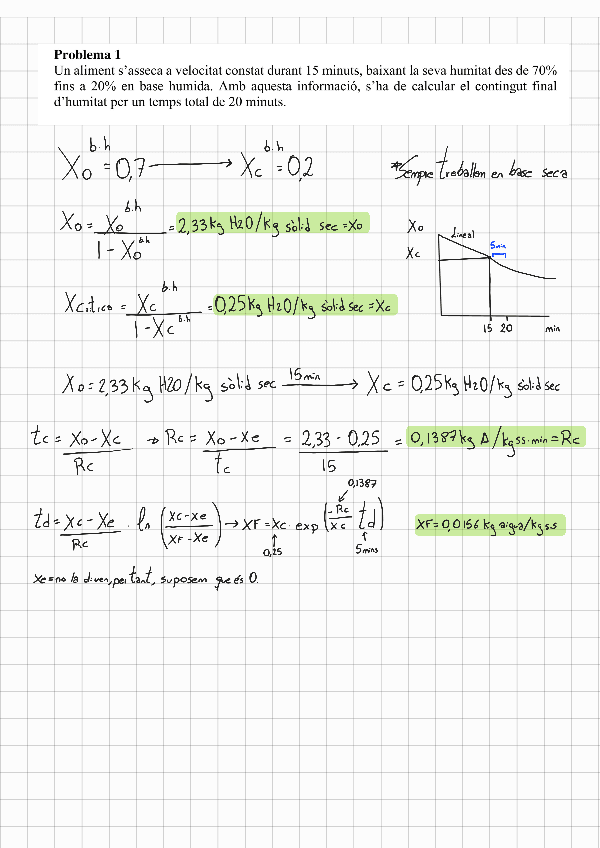 Problema 1
Un aliment s’asseca a velocitat constat durant 15 minuts, baixant la seva humitat des de 70%
fins a 20% en base humida. Amb aquesta informació, s’ha de calcular el contingut final
d’humitat per un temps total de 20 minuts.
X₀ᵇ·ʰ = 0,7 ⟶ Xcᵇ·ʰ = 0,2
*Sempre treballem en base seca
X₀ = X₀ᵇ·ʰ / (1 - X₀ᵇʰ) = 2,33 kg H2O/kg sòlid sec = X₀
Xcrítico = Xcᵇ·ʰ / (1 - Xcᵇ·ʰ) = 0,25 kg H2O/kg sòlid sec = Xc
X₀
Lineal
5min
Xc
15 20 min
X₀ = 2,33 kg H2O/kg sòlid sec 15min ⟶ Xc = 0,25 kg H2O/kg sòlid sec
tc = (X₀ - Xc) / Rc → Rc = (X₀ - Xe) / tc = (2,33 - 0,25) / 15 = 0,1387 kg A/kg ss·min = Rc
0,1387
td = (Xc - Xe) / Rc · ln ((Xc - Xe) / (XF - Xe)) → XF = Xc · exp (-Rc / Xc td)
XF = 0,0156 kg aigua/kg ss
0,25
5mins
Xe = no la diuen, per tant, suposem que és 0.